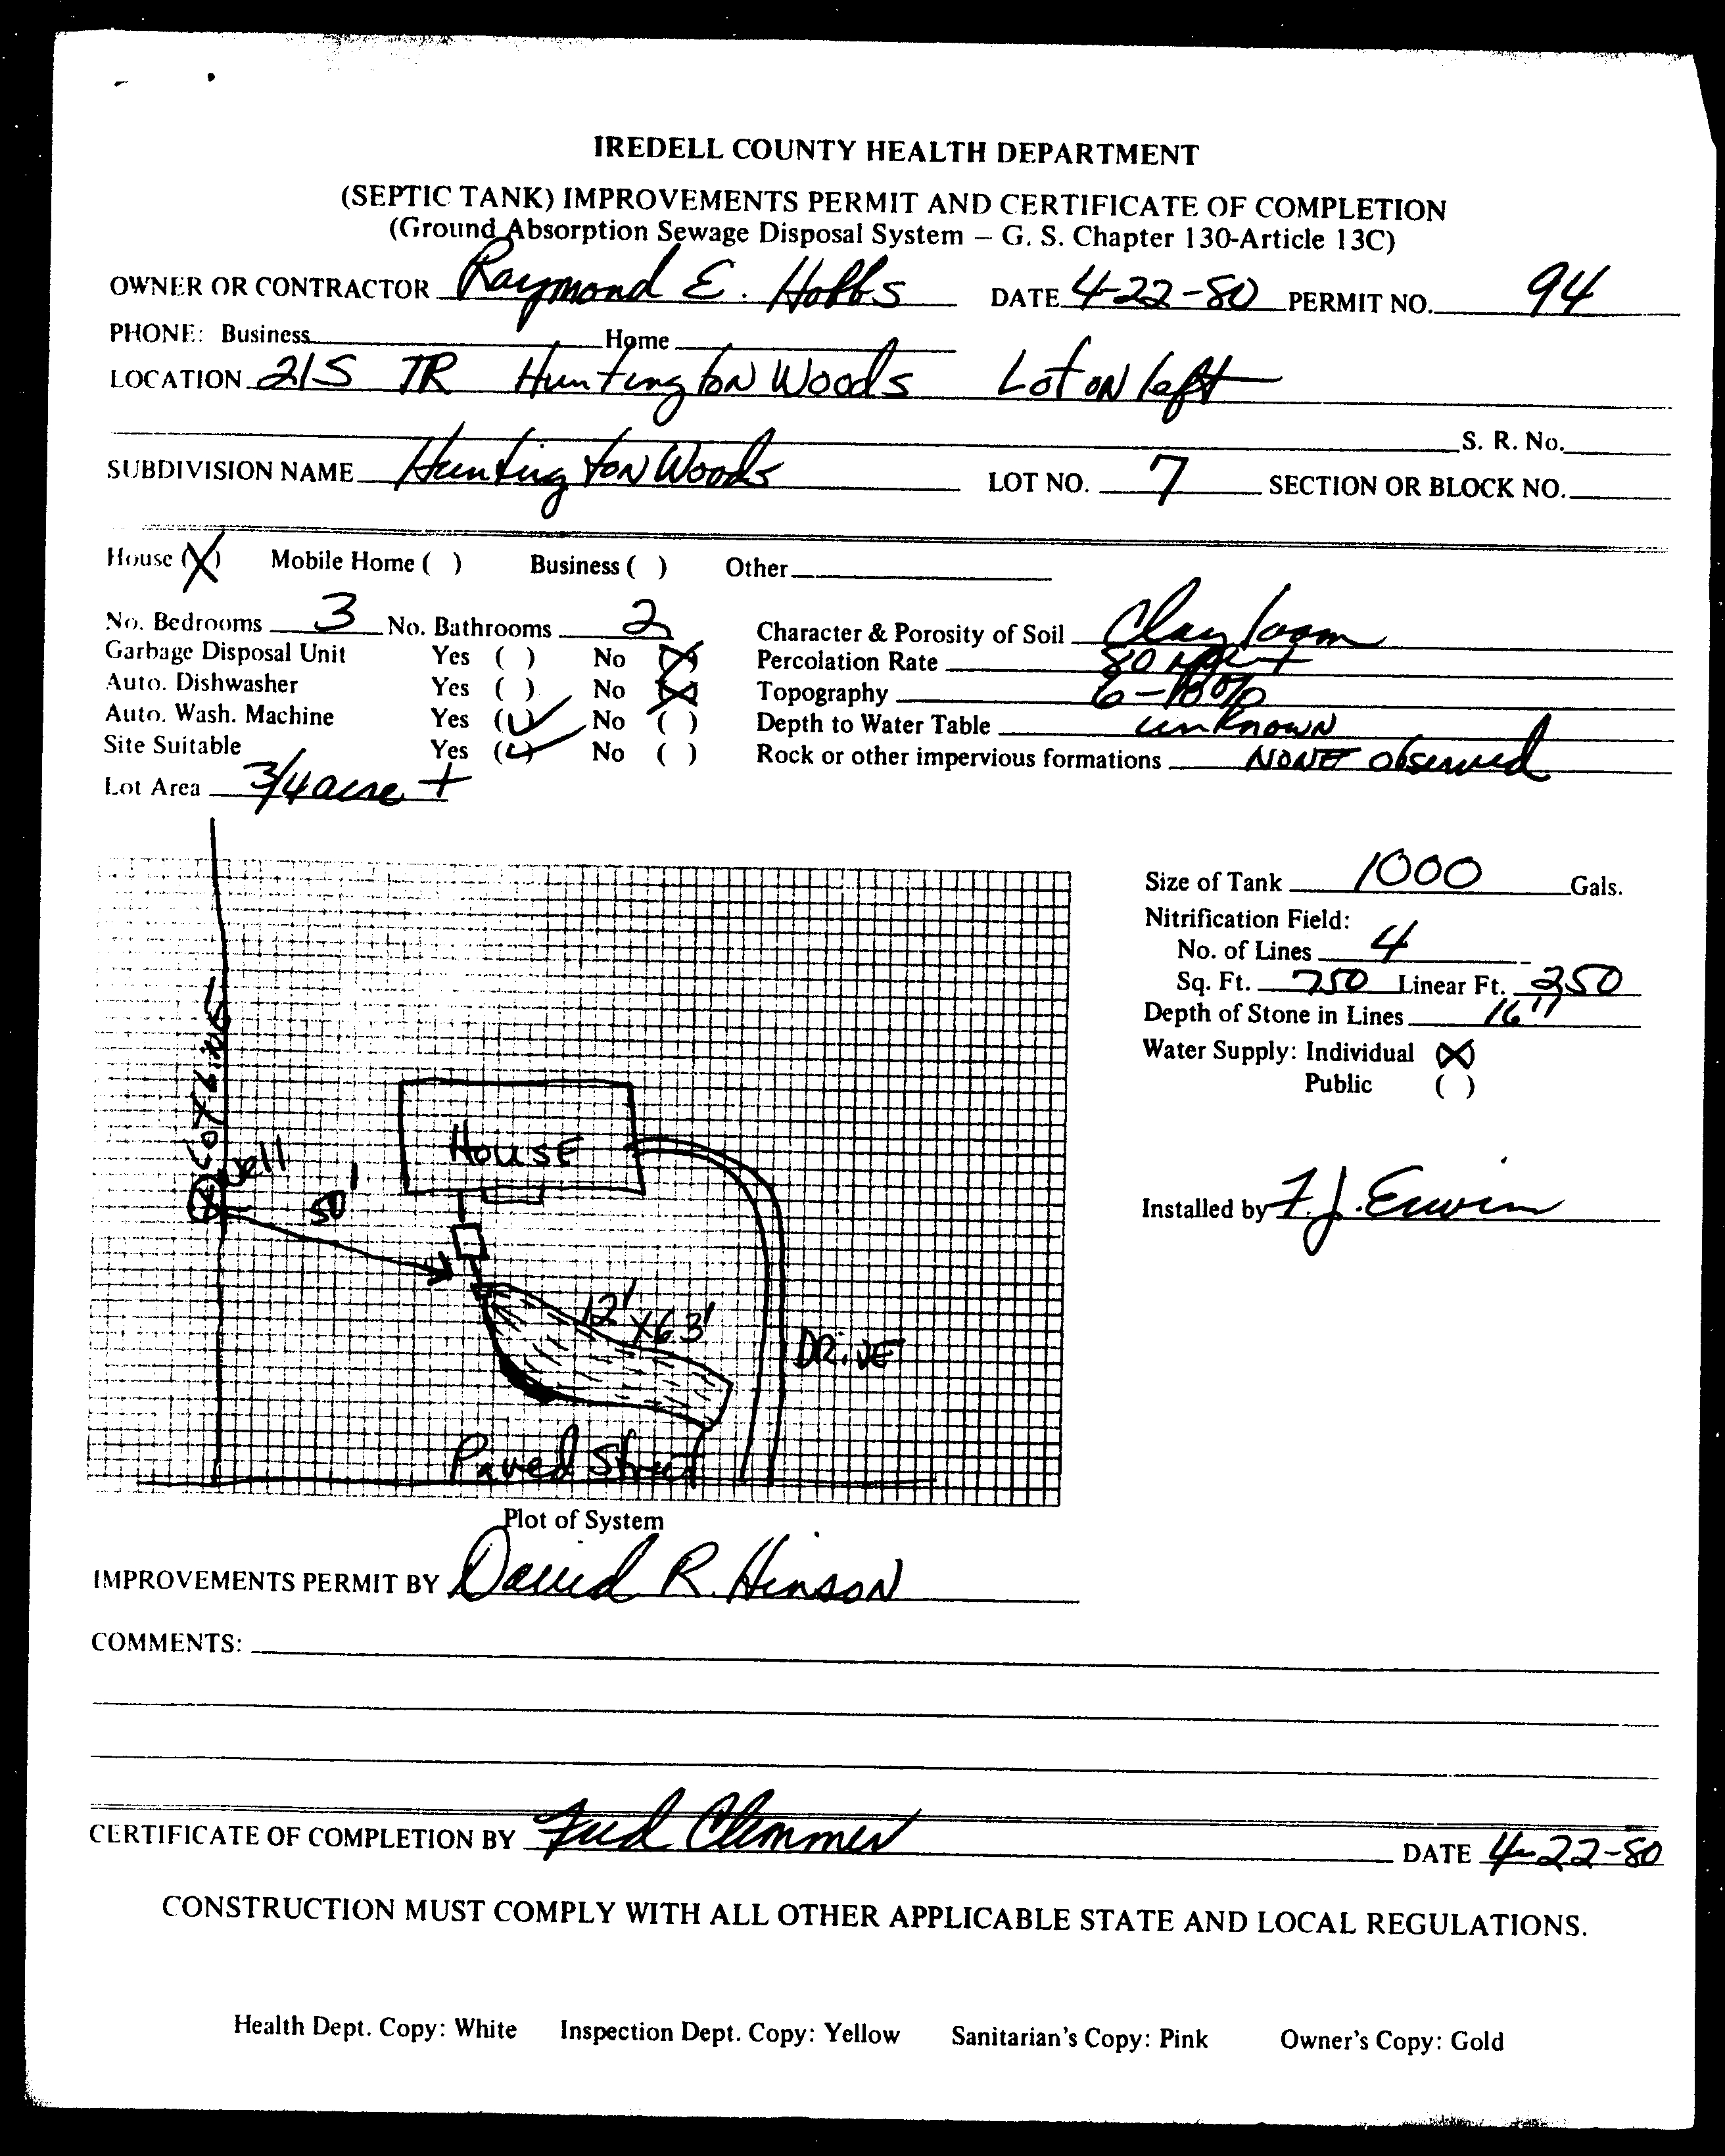 IREDELL COUNTY HEALTH DEPARTMENT
(SEPTIC TANK) IMPROVEMENTS PERMIT AND CERTIFICATE OF COMPLETION
(Ground Absorption Sewage Disposal System – G. S. Chapter 130-Article 13C)
OWNER OR CONTRACTOR Raymond E. Hobbs DATE 4-22-80 PERMIT NO. 94
PHONE: Business Home
LOCATION 21S TR Huntington Woods Lot on left
S. R. No.
SUBDIVISION NAME Huntington Woods LOT NO. 7 SECTION OR BLOCK NO.
House (X) Mobile Home ( ) Business ( ) Other
No. Bedrooms 3 No. Bathrooms 2 Character & Porosity of Soil Clay loam
Garbage Disposal Unit Yes ( ) No (X) Percolation Rate 80
Auto. Dishwasher Yes ( ) No (X) Topography 6-
Auto. Wash. Machine Yes (✓) No ( ) Depth to Water Table unknown
Site Suitable Yes (✓) No ( ) Rock or other impervious formations NONE observed
Lot Area 3/4 acre +
Size of Tank 1000 Gals.
Nitrification Field:
No. of Lines 4
Sq. Ft. 750 Linear Ft. 250
Depth of Stone in Lines 16"
Water Supply: Individual (X)
Public ( )
Installed by F. J. Erwin
Lot Line
Well
50'
House
12' X 63'
DRiVE
Paved Street
Plot of System
IMPROVEMENTS PERMIT BY David R. Hinson
COMMENTS:
CERTIFICATE OF COMPLETION BY Fred Clemmer DATE 4-22-80
CONSTRUCTION MUST COMPLY WITH ALL OTHER APPLICABLE STATE AND LOCAL REGULATIONS.
Health Dept. Copy: White Inspection Dept. Copy: Yellow Sanitarian's Copy: Pink Owner's Copy: Gold